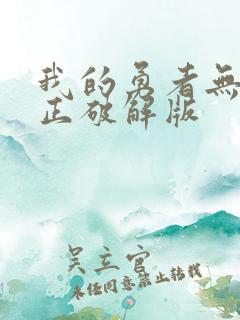 我的勇者無
正破解版
吴立官
未经同意禁止转载